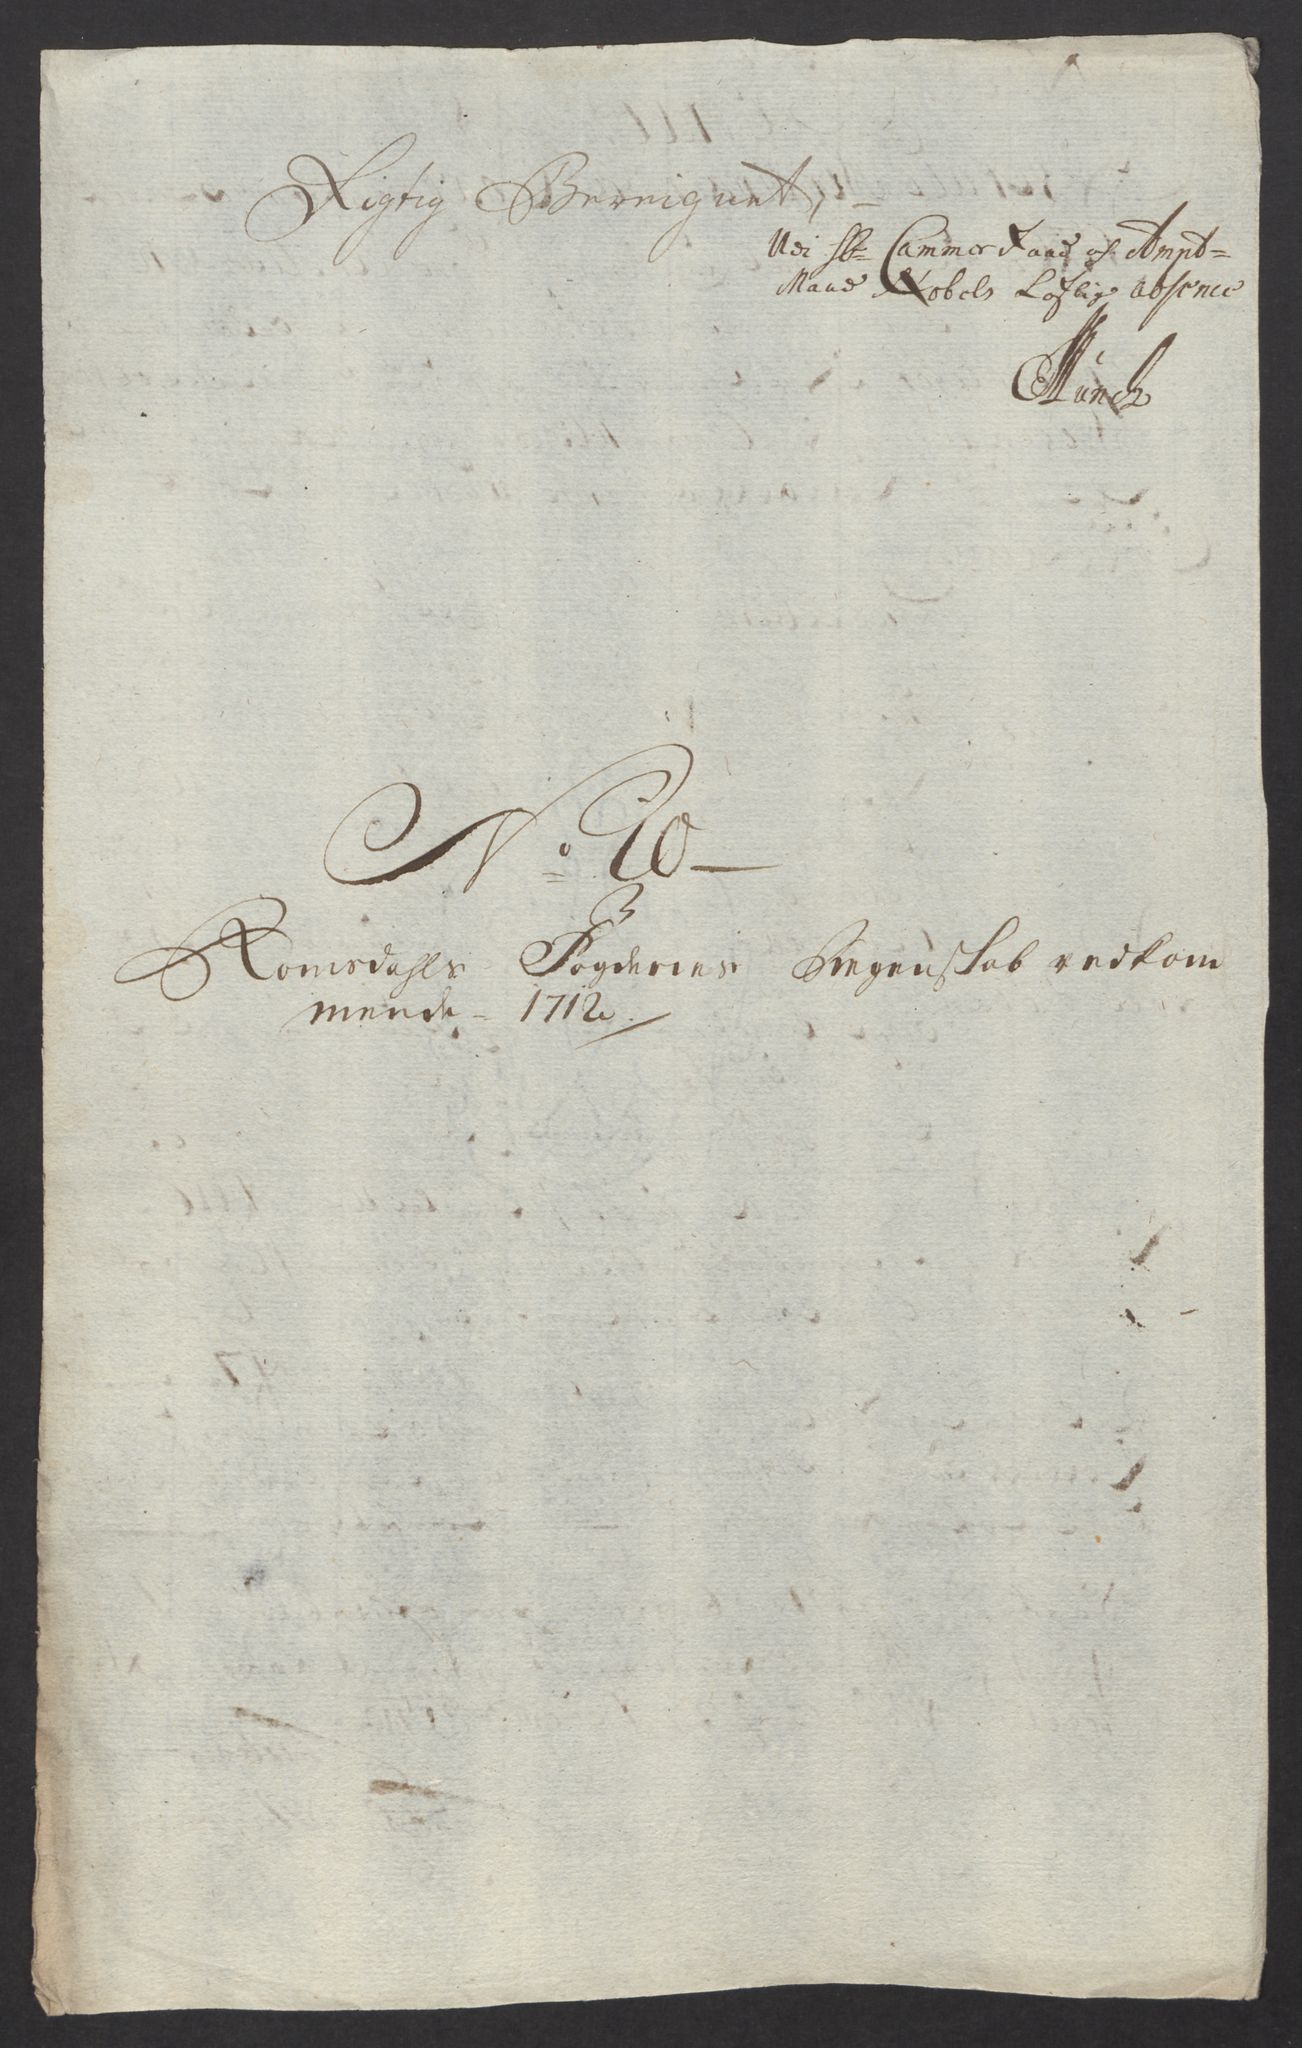 Rigtig Bereignet,
Udi Hr Cammer Raad og Ampt=
Mand Nobels Lovlig absence
Münch
No: 20
Romsdahls Fogderies Regenskab vedkom
mende 1712